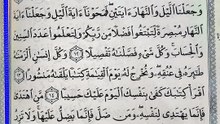 وَجَعَلْنَا ٱلَّيْلَ وَٱلنَّهَارَ ءَايَتَيْنِ فَمَحَوْنَآ ءَايَةَ ٱلَّيْلِ وَجَعَلْنَآ ءَايَةَ
ٱلنَّهَارِ مُبْصِرَةً لِّتَبْتَغُوا۟ فَضْلًا مِّن رَّبِّكُمْ وَلِتَعْلَمُوا۟ عَدَدَ ٱلسِّنِينَ
وَٱلْحِسَابَ وَكُلَّ شَىْءٍ فَصَّلْنَٰهُ تَفْصِيلًا ١٢ وَكُلَّ إِنسَٰنٍ أَلْزَمْنَٰهُ
طَٰٓئِرَهُۥ فِى عُنُقِهِۦ وَنُخْرِجُ لَهُۥ يَوْمَ ٱلْقِيَٰمَةِ كِتَٰبًا يَلْقَىٰهُ مَنشُورًا ١٣
ٱقْرَأْ كِتَٰبَكَ كَفَىٰ بِنَفْسِكَ ٱلْيَوْمَ عَلَيْكَ حَسِيبًا ١٤ مَّنِ ٱهْتَدَىٰ
فَإِنَّمَا يَهْتَدِى لِنَفْسِهِۦ وَمَن ضَلَّ فَإِنَّمَا يَضِلُّ عَلَيْهَا وَلَا تَزِرُ